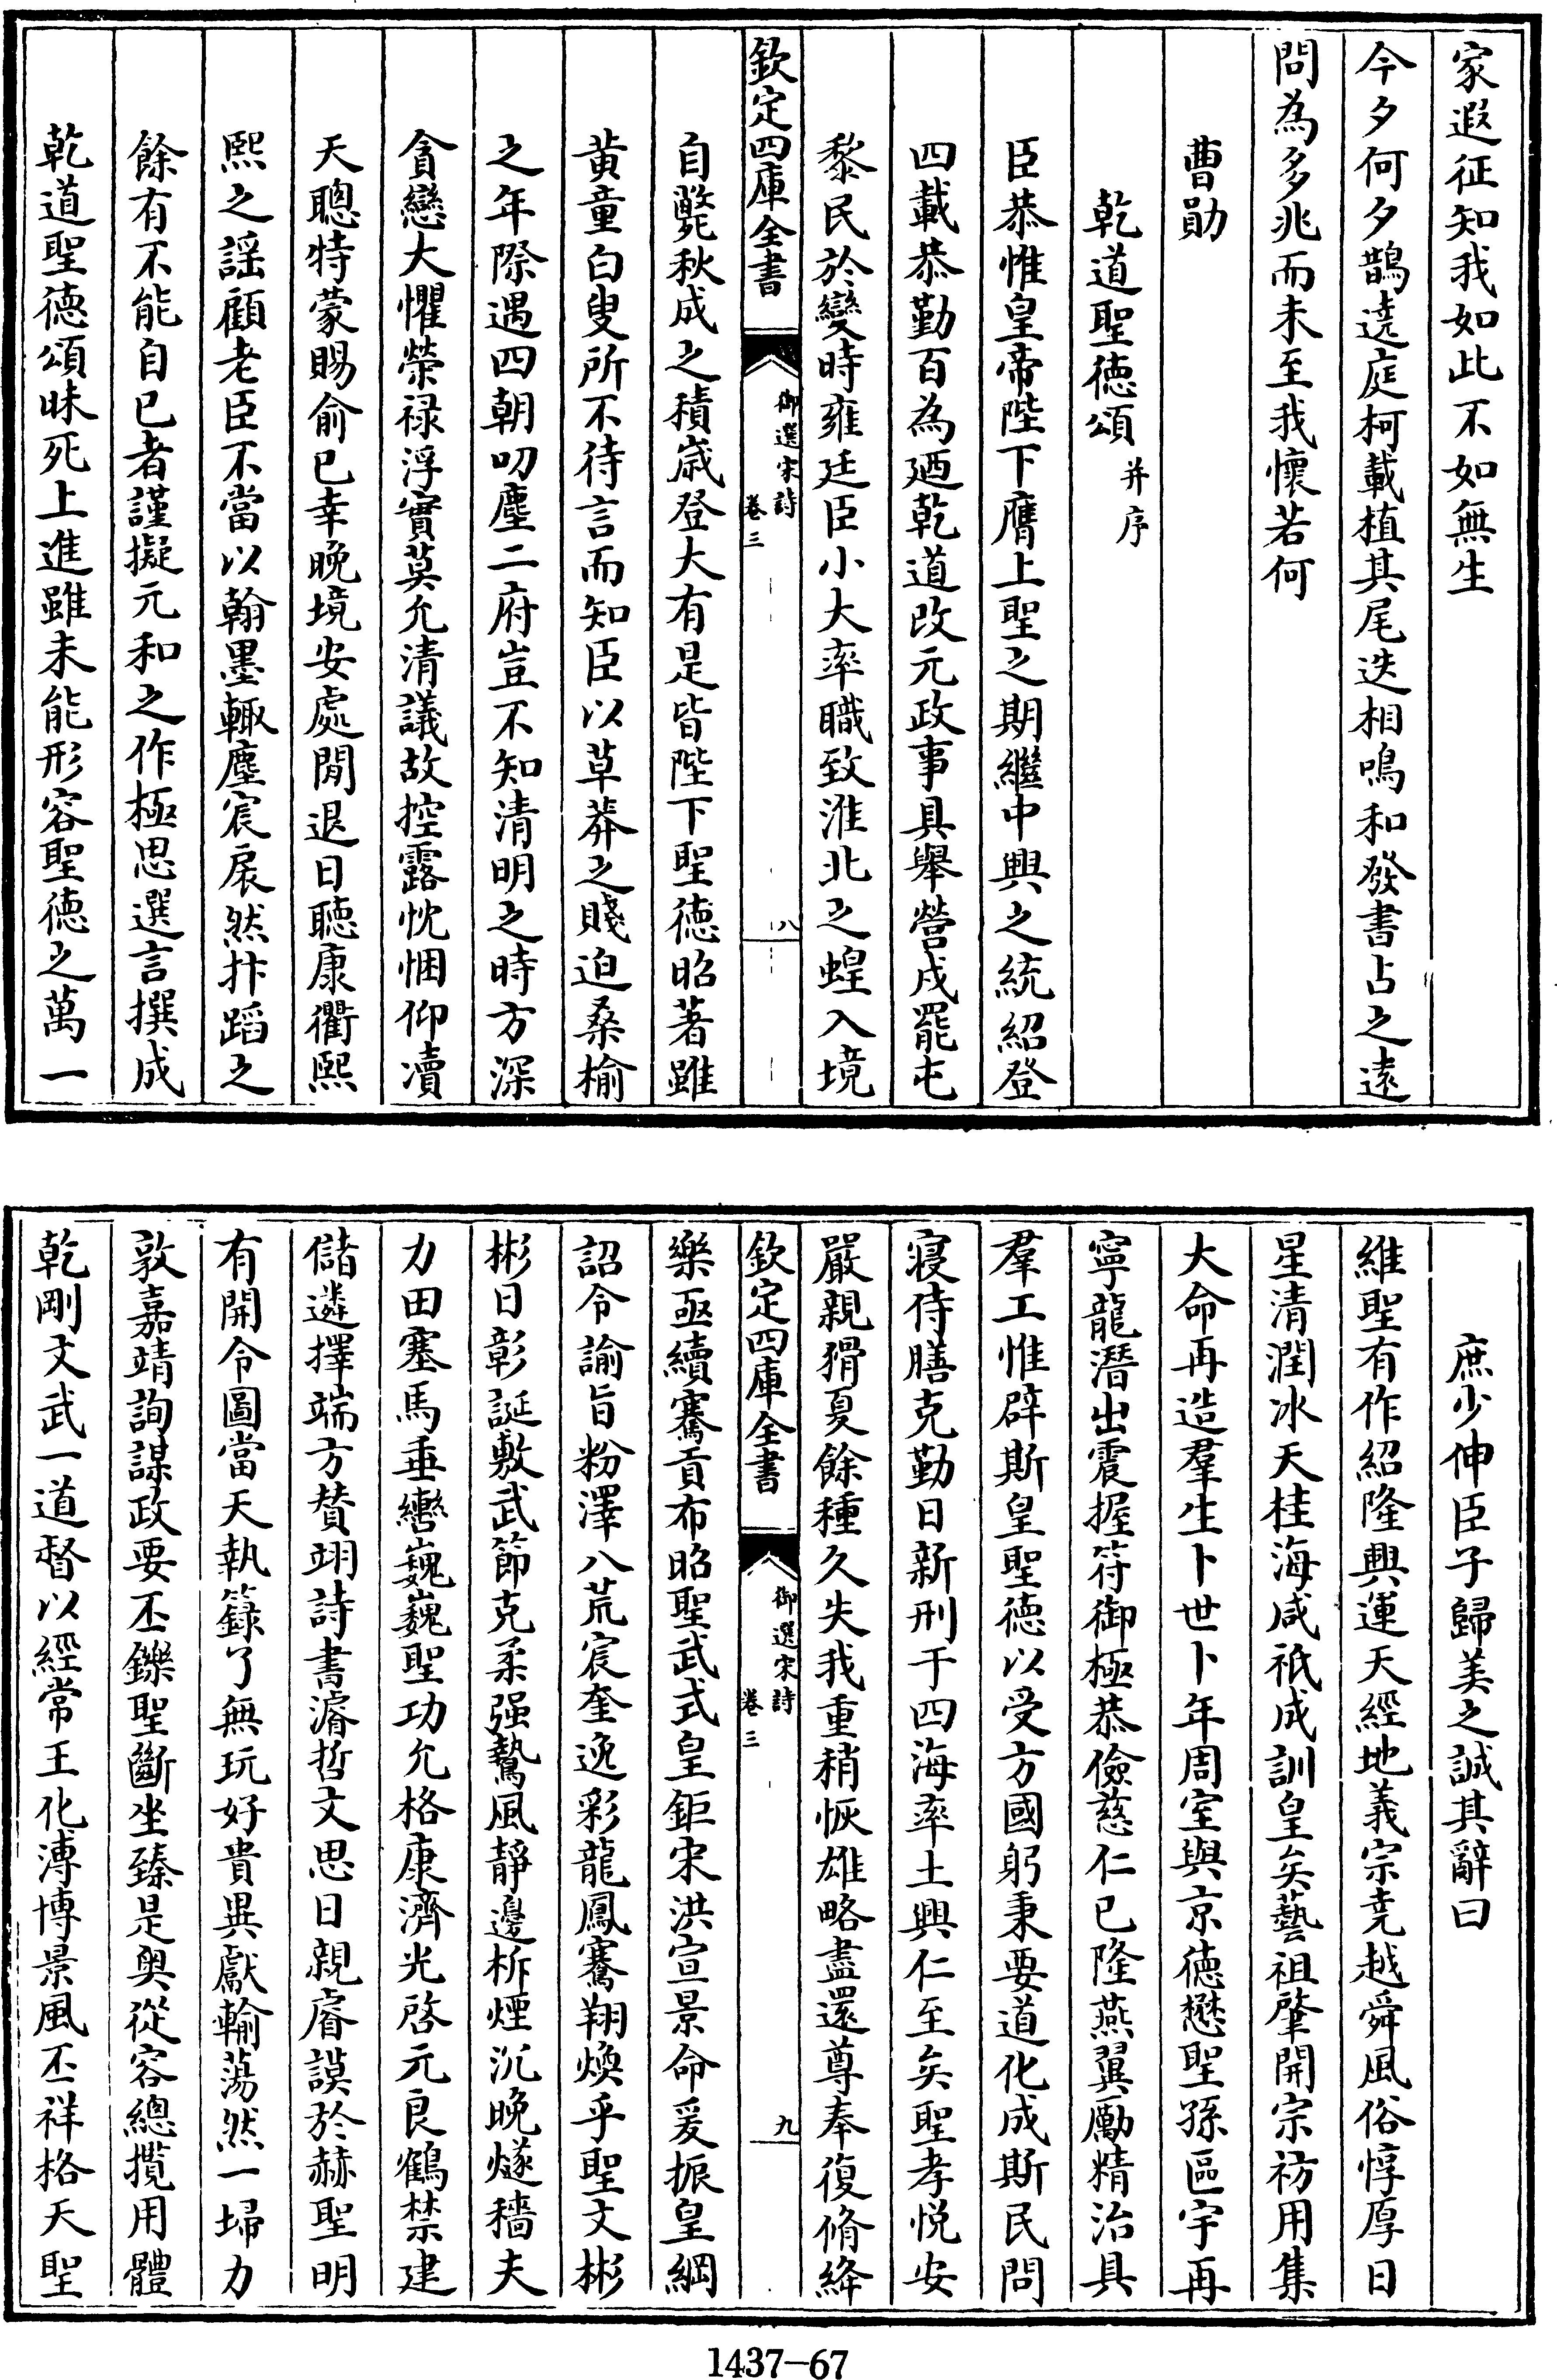 家遐征知我如此不如無生
今夕何夕鵲遶庭柯載植其尾迭相鳴和發書占之遠
問為多兆而未至我懷若何
曹勛
乾道聖德頌并序
臣恭惟皇帝陛下膺上聖之期繼中興之統紹登
四載恭勤百為廼乾道改元政事具舉營戍罷屯
黎民於變時雍廷臣小大率職致淮北之蝗入境
欽定四庫全書
御選宋詩
卷三
八
自斃秋成之積歲登大有是皆陛下聖德昭著雖
黃童白叟所不待言而知臣以草莽之賤迫桑榆
之年際遇四朝叨塵二府豈不知清明之時方深
貪戀大懼榮祿浮實莫允清議故控露忱悃仰凟
天聰特蒙賜俞已幸晚境安處閒退日聽康衢熙
熙之謡顧老臣不當以翰墨輙塵宸扆然抃蹈之
餘有不能自已者謹擬元和之作極思選言撰成
乾道聖德頌昧死上進雖未能形容聖德之萬一
庶少伸臣子歸美之誠其辭曰
維聖有作紹隆興運天經地義宗堯越舜風俗惇厚日
星清潤冰天桂海咸祇成訓皇矣藝祖肇開宗祊用集
大命再造羣生卜世卜年周室與京德懋聖孫區宇再
寧龍潛出震握符御極恭儉慈仁已隆燕翼勵精治具
羣工惟辟斯皇聖德以受方國躬秉要道化成斯民問
寢侍膳克勤日新刑于四海率土興仁至矣聖孝悦安
嚴親猾夏餘種久失我重稍恢雄略盡還尊奉復脩絳
欽定四庫全書
御選宋詩
卷三
九
樂亟續騫貢布昭聖武式皇鉅宋洪宣景命爰振皇綱
詔令諭旨粉澤八荒宸奎逸彩龍鳳騫翔煥乎聖文彬
彬日彰誕敷武節克柔强鷙風靜邊柝煙沉晚燧穡夫
力田塞馬垂轡巍巍聖功允格康濟光啓元良鶴禁建
儲遴擇端方賛翊詩書濬哲文思日親睿謨於赫聖明
有開令圖當天執籙了無玩好貴異獻輸蕩然一埽力
敦嘉靖詢謀政要丕鑠聖斷坐臻是奥從容總攬用體
乾剛文武一道督以經常王化溥博景風丕祥格天聖
1437-67